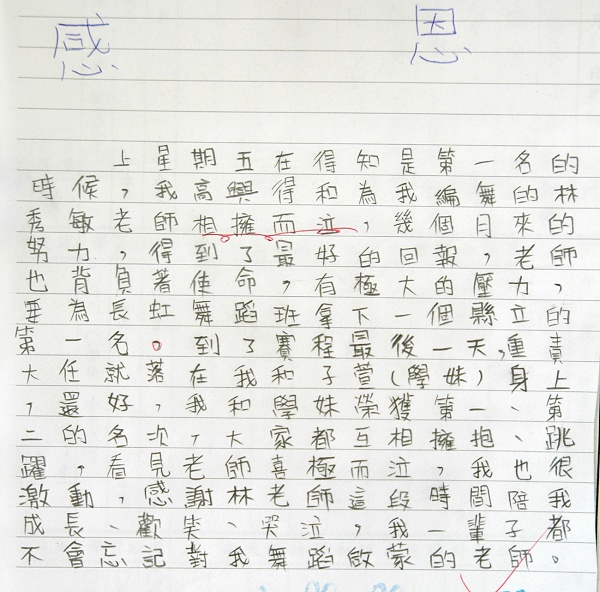 感 恩
上星期五在得知是第一名的
時候,我高興得和為我編舞的林
秀敏老師相擁而泣,幾個月來的
努力,得到了最好的回報,老師
也背負著使命,有極大的壓力,
要為長虹舞蹈班拿下一個縣立的
第一名。到了賽程最後一天,重責
大任就落在我和子萱(學妹)身上
,還好,我和學妹榮獲第一、第
二的名次,大家都互相擁抱、跳
躍,看見老師喜極而泣,我也很
激動,感謝林老師這段時間陪我
成長、歡笑、哭泣,我一輩子都
不會忘記對我舞蹈啟蒙的老師。